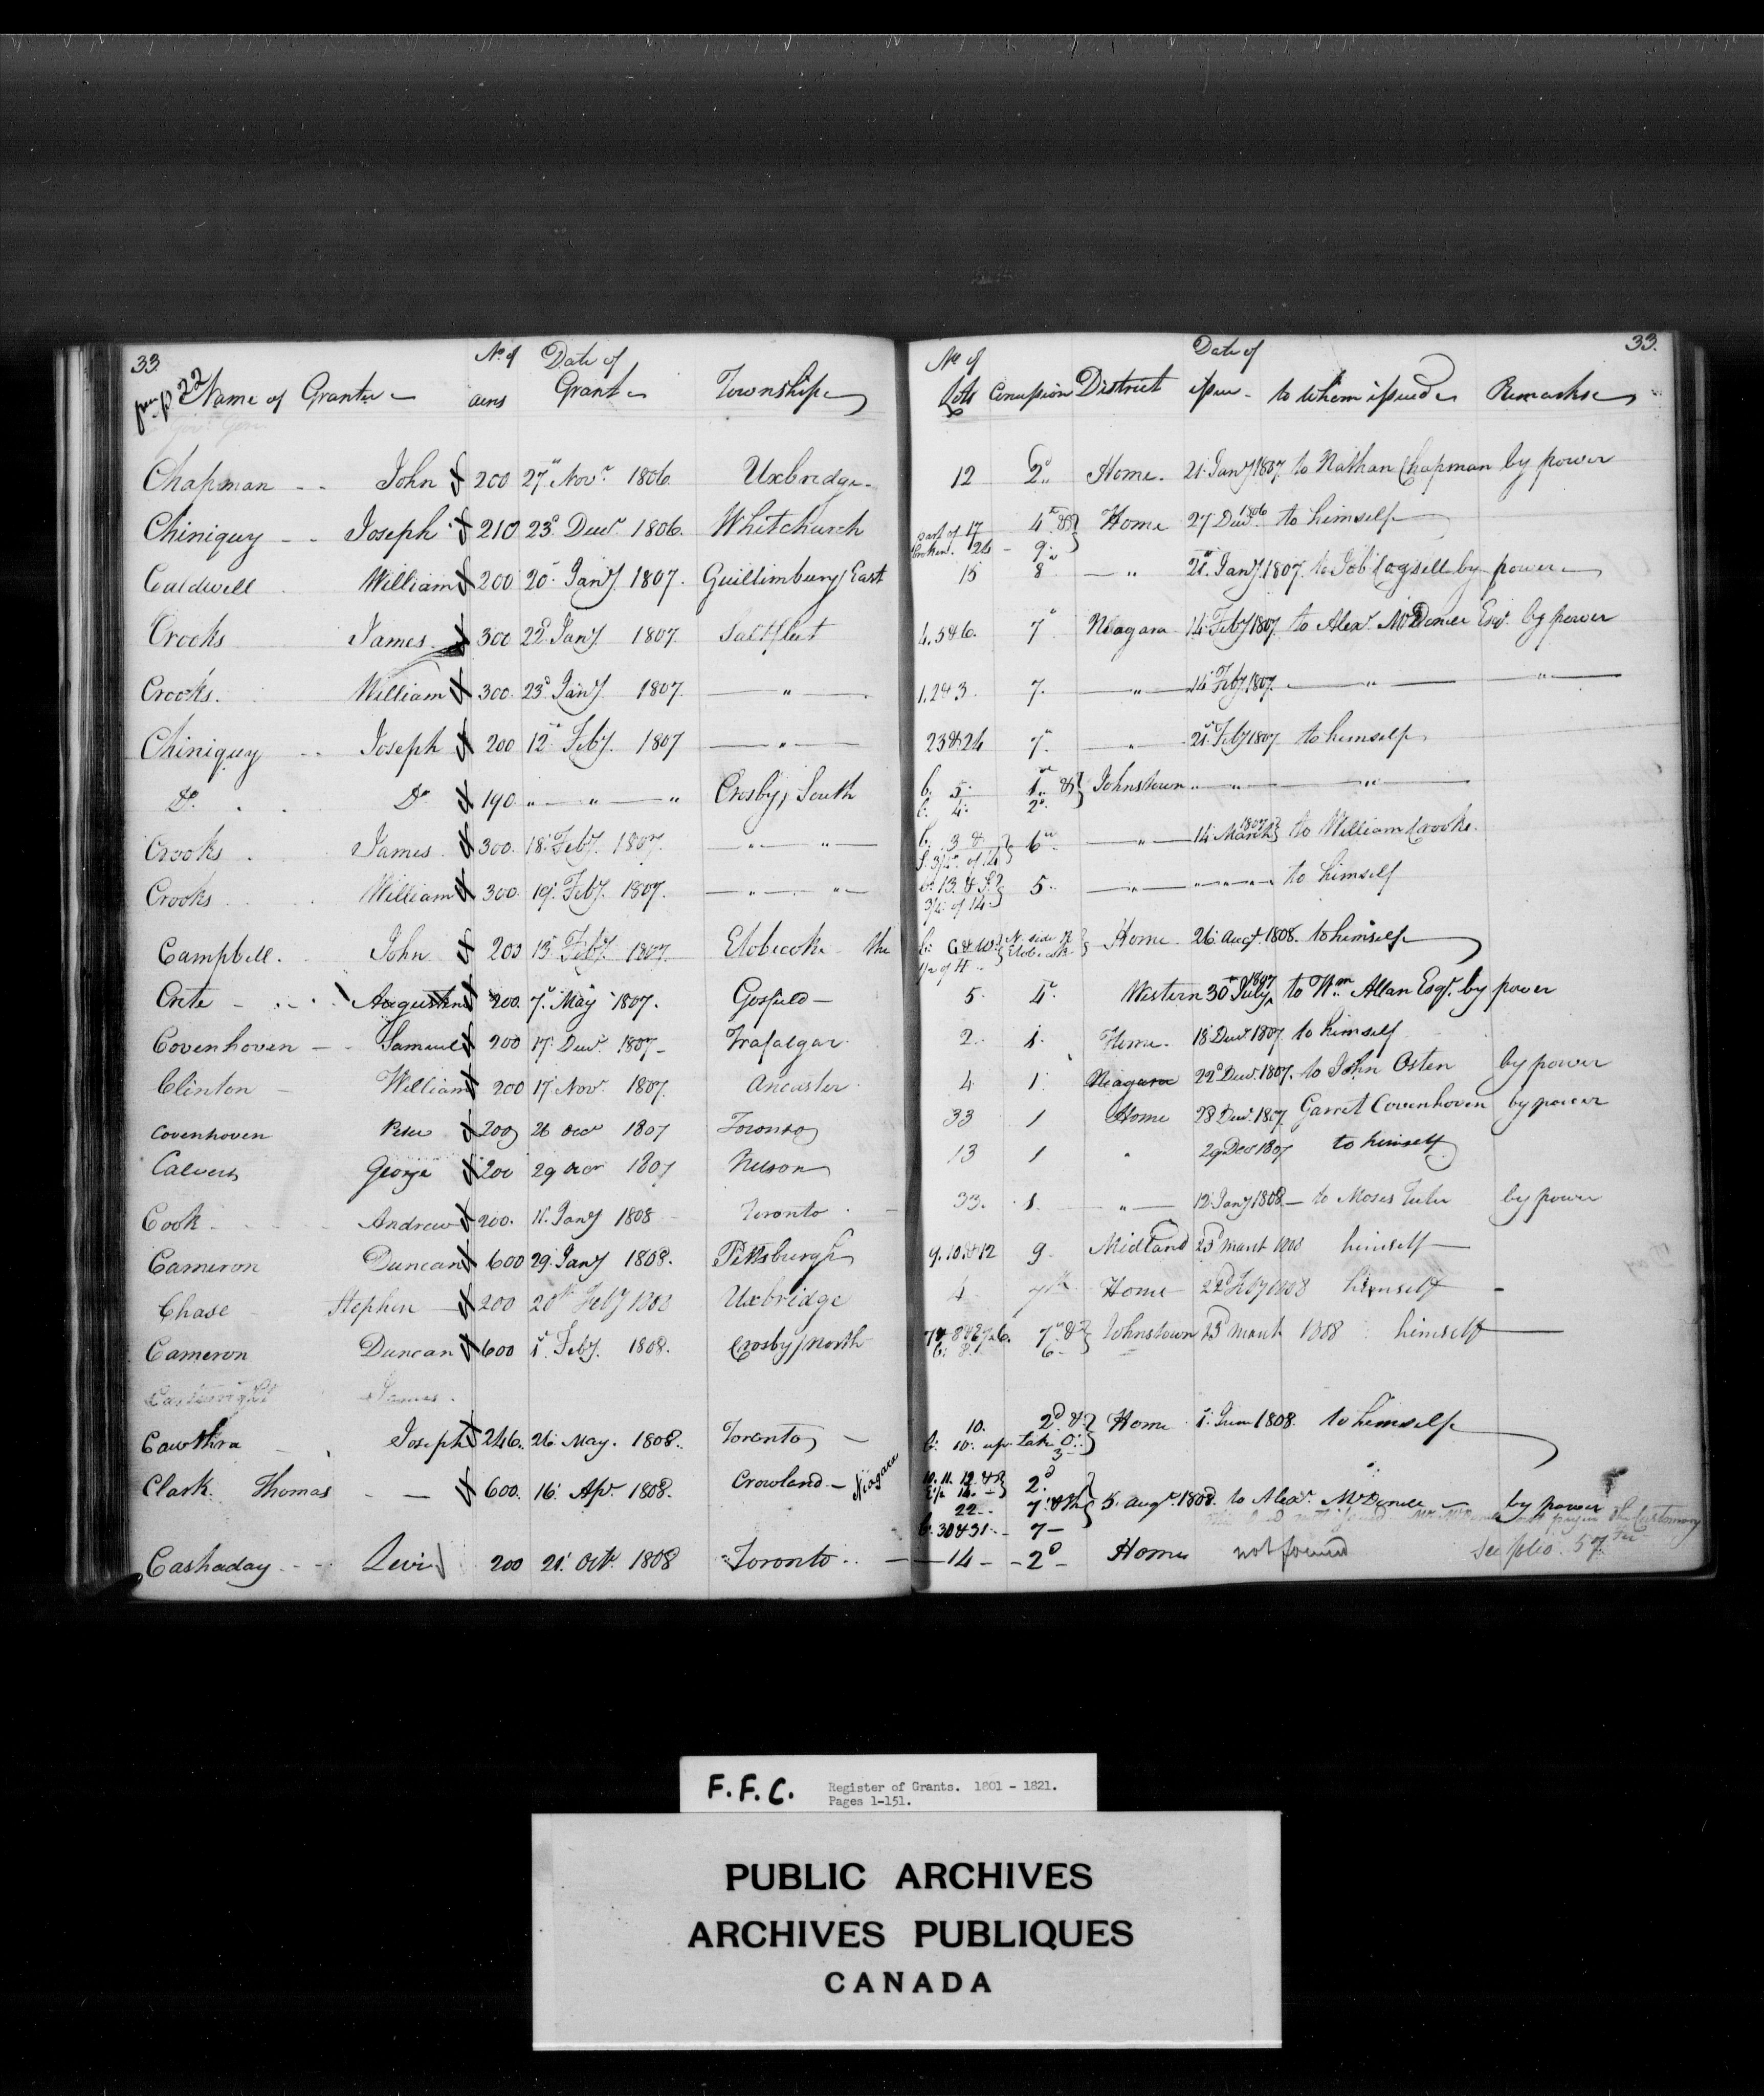 33 33.
from p 22 Name of Grantee No. of acres Date of Grant Township No. of Lots Concession District Date of issue to whom issued Remarks
Chapman John 200 27" Novr. 1806. Uxbridge 12 2d Home. 21. Jany 1807 to Nathan Chapman by power
Chiniquy Joseph 210 23d Decr. 1806. Whitchurch part of 17 broken. 26 4th & 9" Home 27 Decr. 1806 to himself
Caldwell William 200 20. Jany 1807. Guillimbury East 15 8 " 21. Jany 1807. to Job Logsell by power
Crooks James 300 22d Jany 1807 Saltfleet 4. 5 & 6. 7" Niagara 14. Feby 1807. to Alexr. McDonell Esqr. by power
Crooks. William 300. 23d Jany 1807 " 1. 2 & 3. 7. " 14. Feby 1807. " "
Chiniquy Joseph 200 12" Feby 1807 " 23 & 24 7" " 21. Feby 1807 to himself
Do. Do 190 " " " Crosby, South b. 5. b. 4. 1st & 2d. Johnstown " " "
Crooks James 300. 18. Feby 1807. " " b. 13 & S. 3/4 of 14 6" " 14. March 1807 to William Crooks.
Crooks William 300. 19. Feby. 1807. " " b. 13. & S. 3/4 of 14. 5. " " to himself
Campbell. John 200 13. Feby 1807 Etobicoke the b. G & W. 1/2 of H N. side R Etobicoke Home 26. Augt. 1808. to himself
Crite Augustine 200. 7" May 1807. Gosfield 5. 4" Western 30th July 1807 to Wm. Allan Esqr. by power
Covenhoven Samuel 200 17. Decr. 1807 Trafalgar 2. 1. Home. 18 Decr 1807 to himself
Clinton William 200 17. Novr. 1807. Ancaster 4 1. Niagara 22d Decr. 1807. to John Osten by power
Covenhoven Peter 200 26 Decr 1807 Toronto 33 1 Home 28 Decr. 1807. Garret Covenhoven by power
Calvert George 200 29 Decr 1807 Nelson 13 1 " 29 Decr 1807 to himself
Cook Andrew 200. 11. Jany 1808 Toronto 33. 1. " 12. Jany 1808 to Moses Teeter by power
Cameron Duncan 600 29. Jany 1808. Pittsburgh 9. 10. & 12 9 Midland 23d March 1808 himself
Chase Stephen 200 20th Feby 1808 Uxbridge 4 7th Home 22d Feby 1808 himself
Cameron Duncan 600 1" Feby. 1808. Crosby, North 7" & 6. Johnstown 23d March 1808 himself
Cartwright James.
Cawthra Joseph 246. 26. May. 1808. Toronto 10. b. 10. upr Lake O: 2d & 3 Home 1. June 1808. to himself
Clark. Thomas 600. 16. Apr. 1808. Crowland Niagara 10. 11. 12. & E 1/2 14. 2d 22 7. b. 30 & 31. 7 5. Augt. 1808. to Alexr. McDonell by power
Cashaday Levi 200 21. Octr. 1808 Toronto 14 2d Home not found See folio 57.
F.F.C. Register of Grants. 1801 - 1821.
Pages 1-151.
PUBLIC ARCHIVES
ARCHIVES PUBLIQUES
CANADA